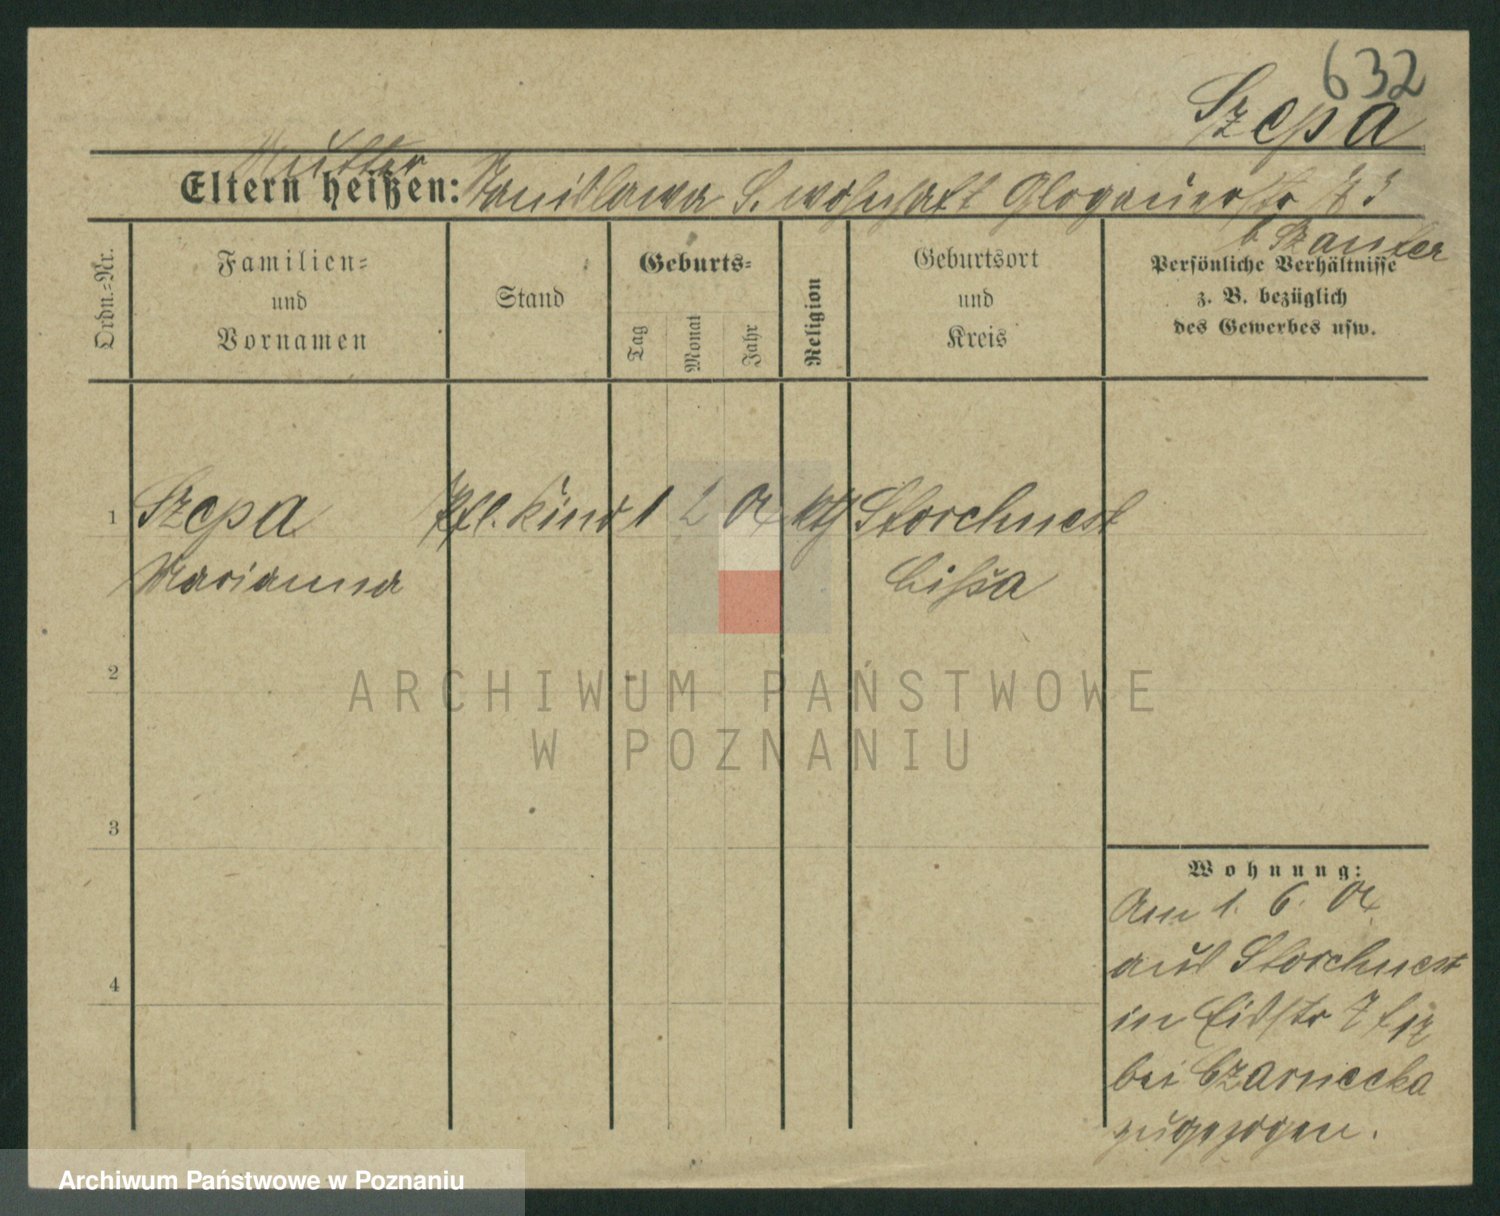 632
Szepa
Mutter
Eltern heißen: Stanislawa S. wohnhaft Glogauerstr
b. Szanfer
Ordn.-Nr.
Familien-
und
Vornamen
Stand
Geburts-
Tag
Monat
Jahr
Religion
Geburtsort
und
Kreis
Persönliche Verhältnisse
z. B. bezüglich
des Gewerbes usw.
1 Szepa Pfl. Kind 1 2 04 kth Storchnest
Marianna Lissa
2
3
4
Wohnung:
Am 1. 6. 04
aus Storchnest
in
bei Czarnecka
zugezogen.
ARCHIWUM PAŃSTWOWE
W POZNANIU
Archiwum Państwowe w Poznaniu